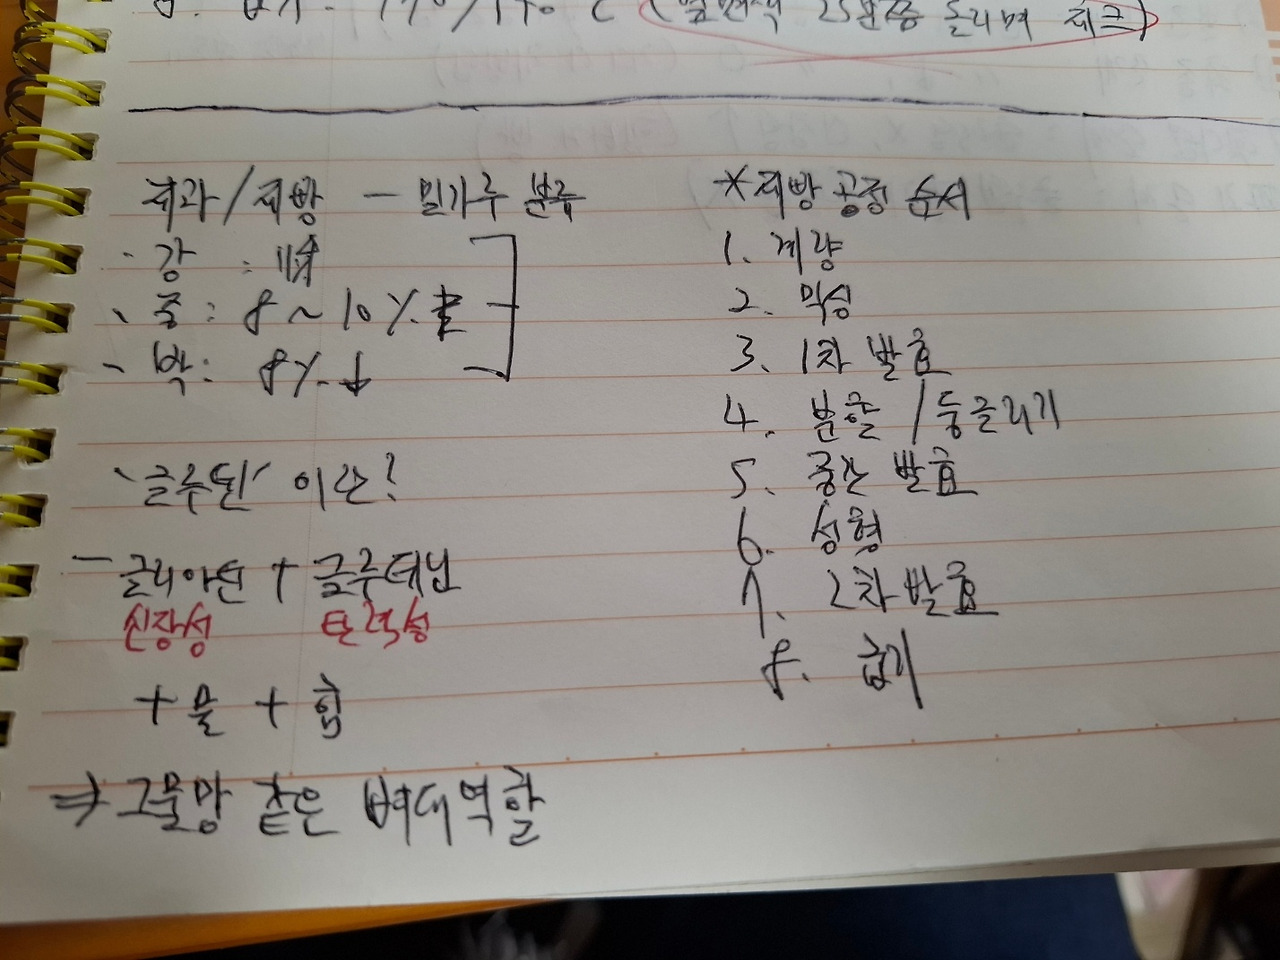 제과/제빵 - 밀가루 분류
· 강 : 11%↑
· 중 : 8 ~ 10%
· 박 : 8%↓
'글루텐' 이란?
- 글리아딘 + 글루테닌
신장성 탄력성
+ 물 + 힘
⇒ 그물망 같은 뼈대 역할
* 제빵 공정 순서
1. 계량
2. 믹싱
3. 1차 발효
4. 분할 / 둥글리기
5. 중간 발효
6. 성형
7. 2차 발효
8. 굽기